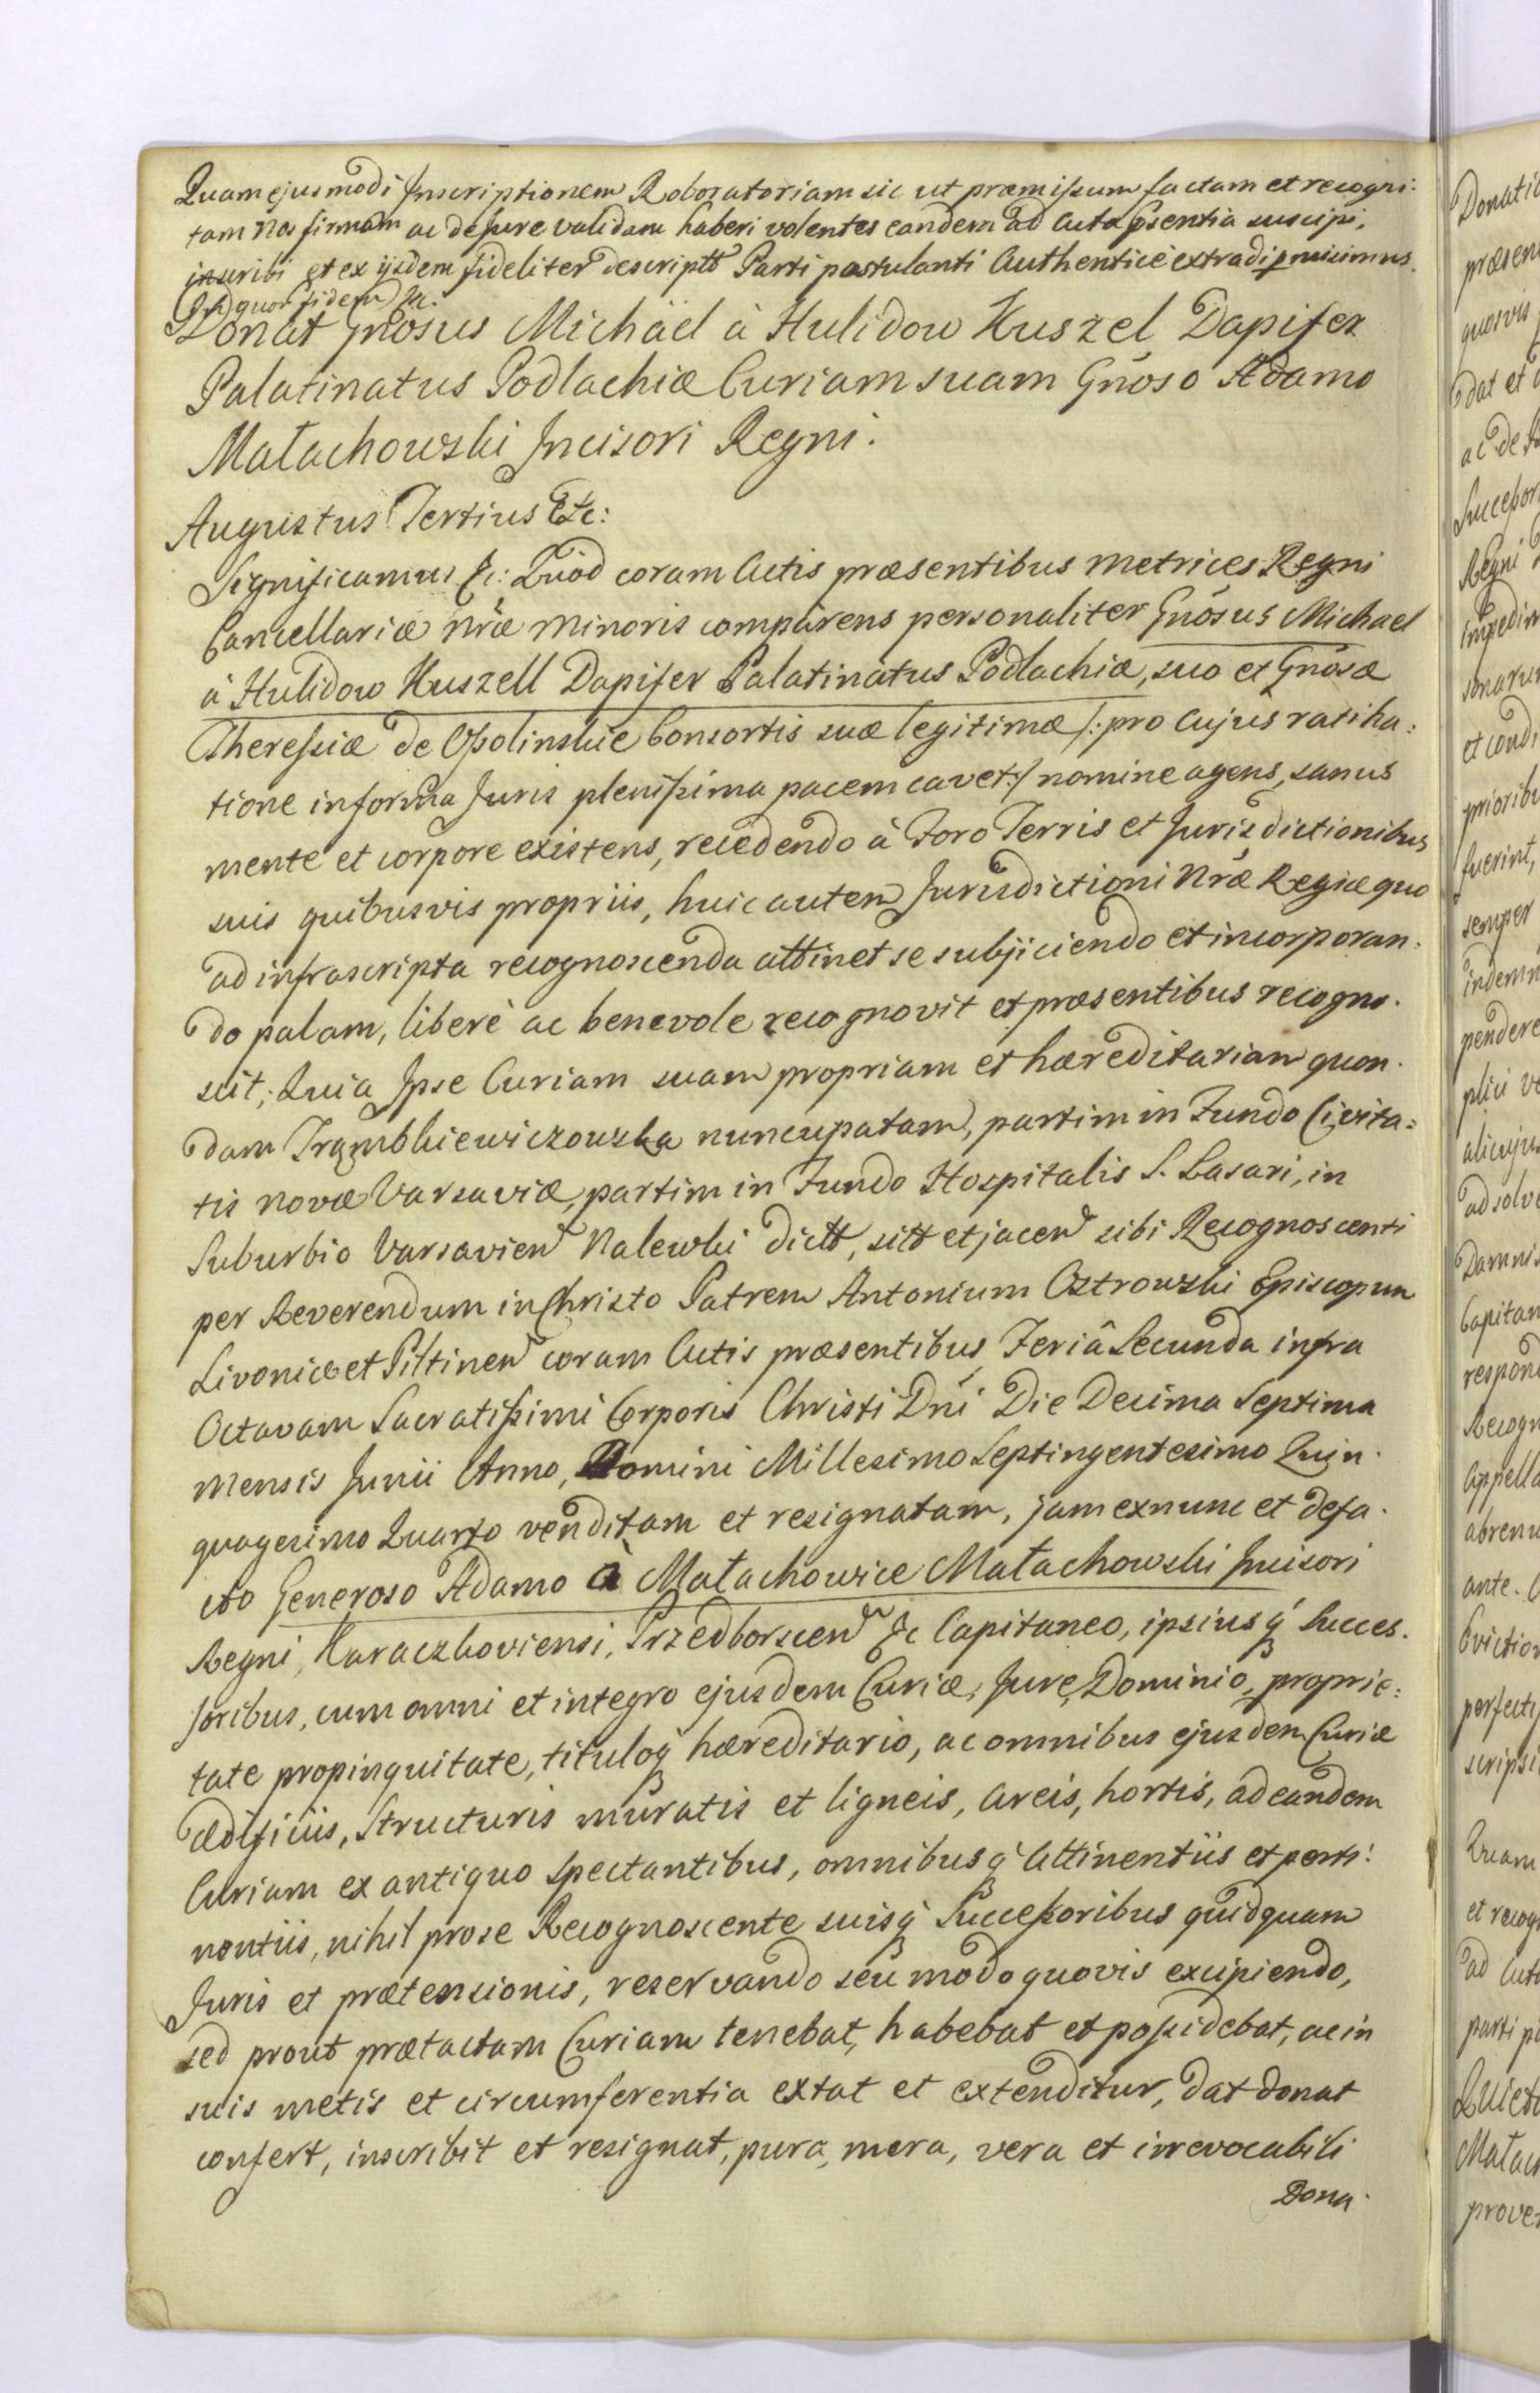 Quam ejusmodi Inscriptionem Roboratoriam sic ut præmissum factam et recogni:
tam Nos firmam ac de Jure validam haberi volentes eandem ad Acta pñsentia suscipi,
inscribi et ex ijsdem fideliter descriptã Parti postulanti Authenticè extradi permisimus.
In quor fidem &c.
Donat Gnõsus Michäel à Hulidow Kuszel Dapifer
Palatinatus Podlachiæ Curiam suam Gnõso Adamo
Małachowski Incisori Regni.
Augustus Tertius Etc:
Significamus &c: Quòd coram Actis præsentibus Metrices Regni
Cancellariæ Nr̃æ Minoris comparens personaliter Gnõsus Michael
à Hulidow Kuszell Dapifer Palatinatus Podlachiæ, suo et Gnõsæ
Theressiæ de Ossolinskie Consortis suæ legitimæ /: pro cujus ratiha:
tione in forma Juris plenissima pacem cavet :/ nomine agens, sanus
mente et corpore existens, recedendo à Foro Terris et Jurisdictionibus
suis quibusvis propriis, huic autem Jurisdictioni Nr̃æ Regiæ quo
ad infrascripta recognoscenda attinet se subjiciendo et incorporan:
do palam, liberè ac benevole recognovit et præsentibus recogno.
scit; Quia Ipse Curiam suam propriam et hæreditariam quon.
dam Trąmbkiewiczowska nuncupatam, partim in Fundo Civita:
tis Novæ Varsaviæ, partim in Fundo Hospitalis S. Lasari, in
Suburbio Varsavien̄ Nalewki dictã, sitã et jacen̄ sibi Recognoscenti
per Reverendum in Christo Patrem Antonium Ostrowski Episcopum
Livoniæ et Piltinen̄ coram Actis præsentibus Feriâ Secunda infra
Octavam Sacratissimi Corporis Christi Dñi Die Decima Septima
Mensis Junii Anno, Domini Millesimo Septingentesimo Quin.
quagesimo Quarto venditam et resignatam, jam ex nunc et de fa.
cto Generoso Adamo à Małachowice Małachowski Incisori
Regni, Karaczkoviensi, Przedborscen̄ &c Capitaneo, ipsiusq́ Succes.
soribus, cum omni et integro ejusdem Curiæ, Jure, Dominio, proprie:
tate propinquitate, tituloq́ hæreditario, ac omnibus ejusdem Curiæ
ædificiis, Structuris muratis et ligneis, areis, hortis, ad eandem
Curiam ex antiquo Spectantibus, omnibusq́ Attinentiis et perti:
nentiis, nihil pro se Recognoscente suisq́ Successoribus quidquam
Juris et prætensionis, reservando seu modo quovis excipiendo,
sed prout prætactam Curiam tenebat, habebat et possidebat, ac in
suis metis et circumferentia extat et extenditur, dat donat
confert, inscribit et resignat, pura, mera, vera et irrevocabili
Dona.